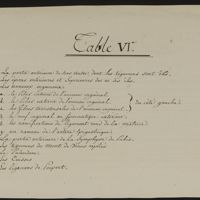 Table VI.
La partie antérieure du bas ventre dont les tégumens sont ôtés.
Les épines antérieures et supérieures des os des iles.
Les anneaux inguinaux.
le pilier interne de l'anneau inguinal.
le pilier externe de l'anneau inguinal.
les fibres transversales de l'anneau inguinal.
du côté gauche.
le nerf inguinal ou spermatique externe.
les ramifications du ligament rond de la matrice.
un rameau de l'artère épigastrique.
La partie antérieure de la Symphyse du Pubis.
Les tégumens du Mont de Vénus repliés
La
Les Cuisses
Les ligamens de Poupart.